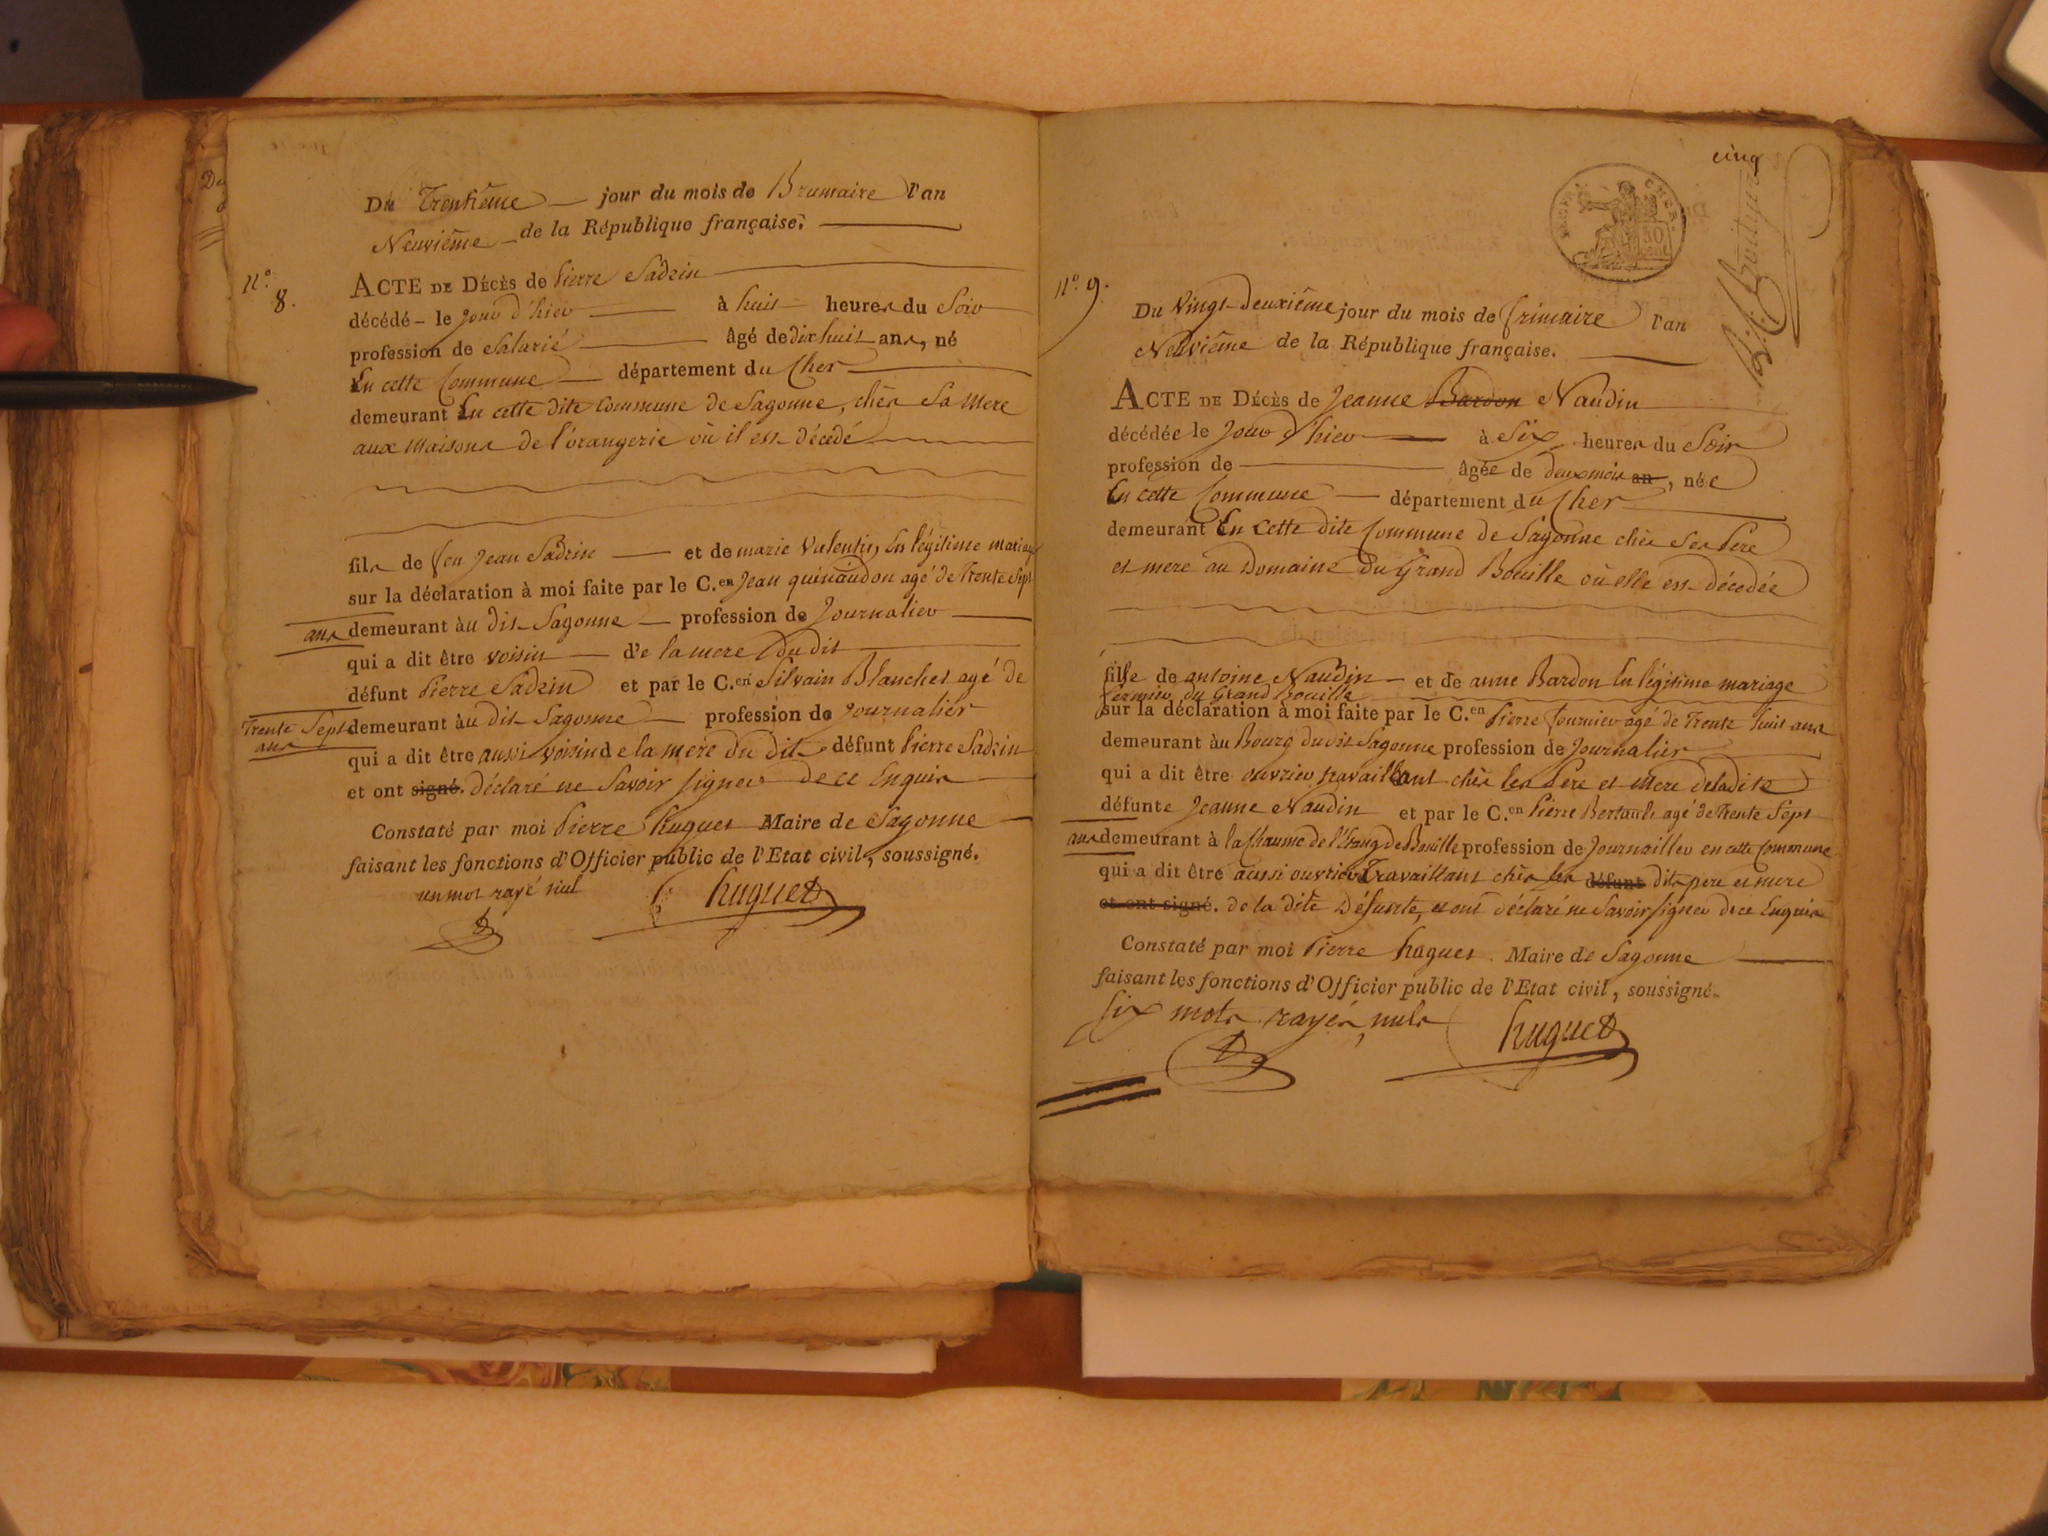 Du Trentième jour du mois de Brumaire l'an
Neuvième de la République française.
N.º 8.
ACTE DE DÉCÈS de Pierre Sadrin
décédé le jour d'hier à huit heures du Soir
profession de Salarié âgé de dix huit ans, né
En cette Commune département du Cher
demeurant En cette dite Commune de Sagonne, chés Sa Mere
aux Maisons de l'orangerie où il est décédé
fils de feu Jean Sadrin et de marie Valentin, En légitime mariage
sur la déclaration à moi faite par le C.en Jean quinaudon agé de Trente Sept
ans demeurant àu dit Sagonne profession de Journalier
qui a dit être voisin de la mere du dit
défunt Pierre Sadrin et par le C.en Silvain Blanchet agé de
Trente Sept ans demeurant àu dit Sagonne profession de Journalier
qui a dit être aussi voisin de la mere du dit défunt Pierre Sadrin
et ont signé. déclaré ne Savoir signer de ce Enquis
Constaté par moi Pierre huguet Maire de Sagonne
faisant les fonctions d'Officier public de l'Etat civil, soussigné.
un mot rayé nul
huguet
cinq
CHER.
50
cent
N.º 9.
Du Vingt-deuxième jour du mois de frimaire l'an
Neuvième de la République française.
ACTE DE DÉCÈS de Jeanne Bardon Naudin
décédée le Jour d'hier à Six heures du Soir
profession de âgée de deux mois an, née
En cette Commune département du Cher
demeurant En Cette dite Commune de Sagonne chés Ses Pere
et mere au Domaine du Grand Bouille où elle est décédée
fille de antoine Naudin et de anne Bardon En légitime mariage
fermier du Grand Bouille
sur la déclaration à moi faite par le C.en Pierre fournier agé de Trente huit ans
demeurant àu Bourg du dit Sagonne profession de Journalier
qui a dit être ouvrier travaillant chés les Pere et Mere de la dite
défunte Jeanne Naudin et par le C.en Pierre Bertault agé de Trente Sept
ans demeurant à la Chaume de l'Etang de Bouille profession de Journaillier en cette Commune
qui a dit être aussi ouvrier Travaillant chés les défunt dits pere et mere
et ont signé. de la dite Defunte, et ont déclaré ne Savoir signer de ce Enquis
Constaté par moi Pierre huguet Maire de Sagonne
faisant les fonctions d'Officier public de l'Etat civil, soussigné.
Six mots rayés, nuls
huguet